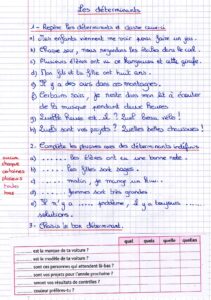 Les déterminants
1 - Repère les déterminants et classe ceux-ci
a) Mes enfants viennent me voir pour faire un jeu.
b) Chaque soir, nous regardons les étoiles dans le ciel.
c) Plusieurs élèves ont vu ce kangourou et cette girafe.
d) Ton fils et ta fille ont huit ans.
e) Il y a des ours dans ces montagnes.
f) Certains soirs, je reste dans mon lit à écouter
de la musique pendant deux heures
g) Quelle heure est-il ? Quel beau vélo !
h) Quels sont vos projets ? Quelles belles chaussures !
2 - Complète les phrases avec des déterminants indéfinis
aucun
chaque
certaines
plusieurs
toutes
tous
a) ...... les élèves ont eu une bonne note.
b) ...... les filles sont sages.
c) ...... matin, je mange un kiwi.
d) ...... femmes sont très grandes
e) Il n'y a ..... problème, il y a toujours .....
solutions.
3 - Choisis le bon déterminant.
quel quels quelle quelles
... est la marque de ta voiture ?
... est le modèle de ta voiture ?
... sont ces personnes qui attendent là-bas ?
... sont vos projets pour l'année prochaine ?
... seront vos résultats de contrôles ?
... couleur préfères-tu ?